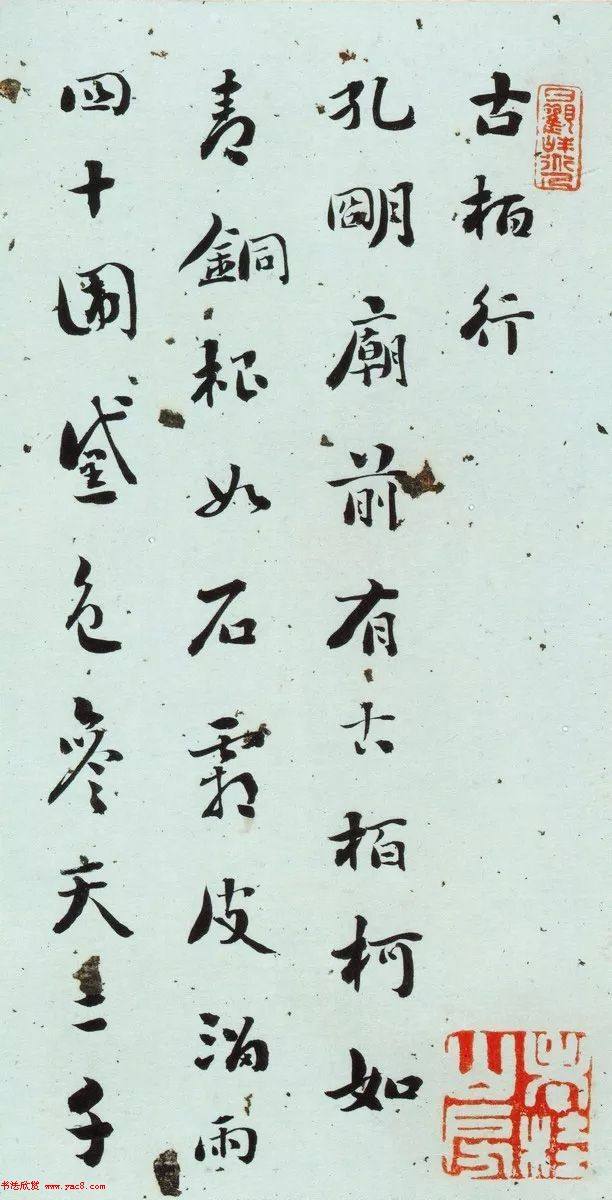 古栢行
孔朙廟前有古栢柯如
青銅根如石霜皮溜雨
四十圍黛色參天二千
书法欣赏 www.yac8.com